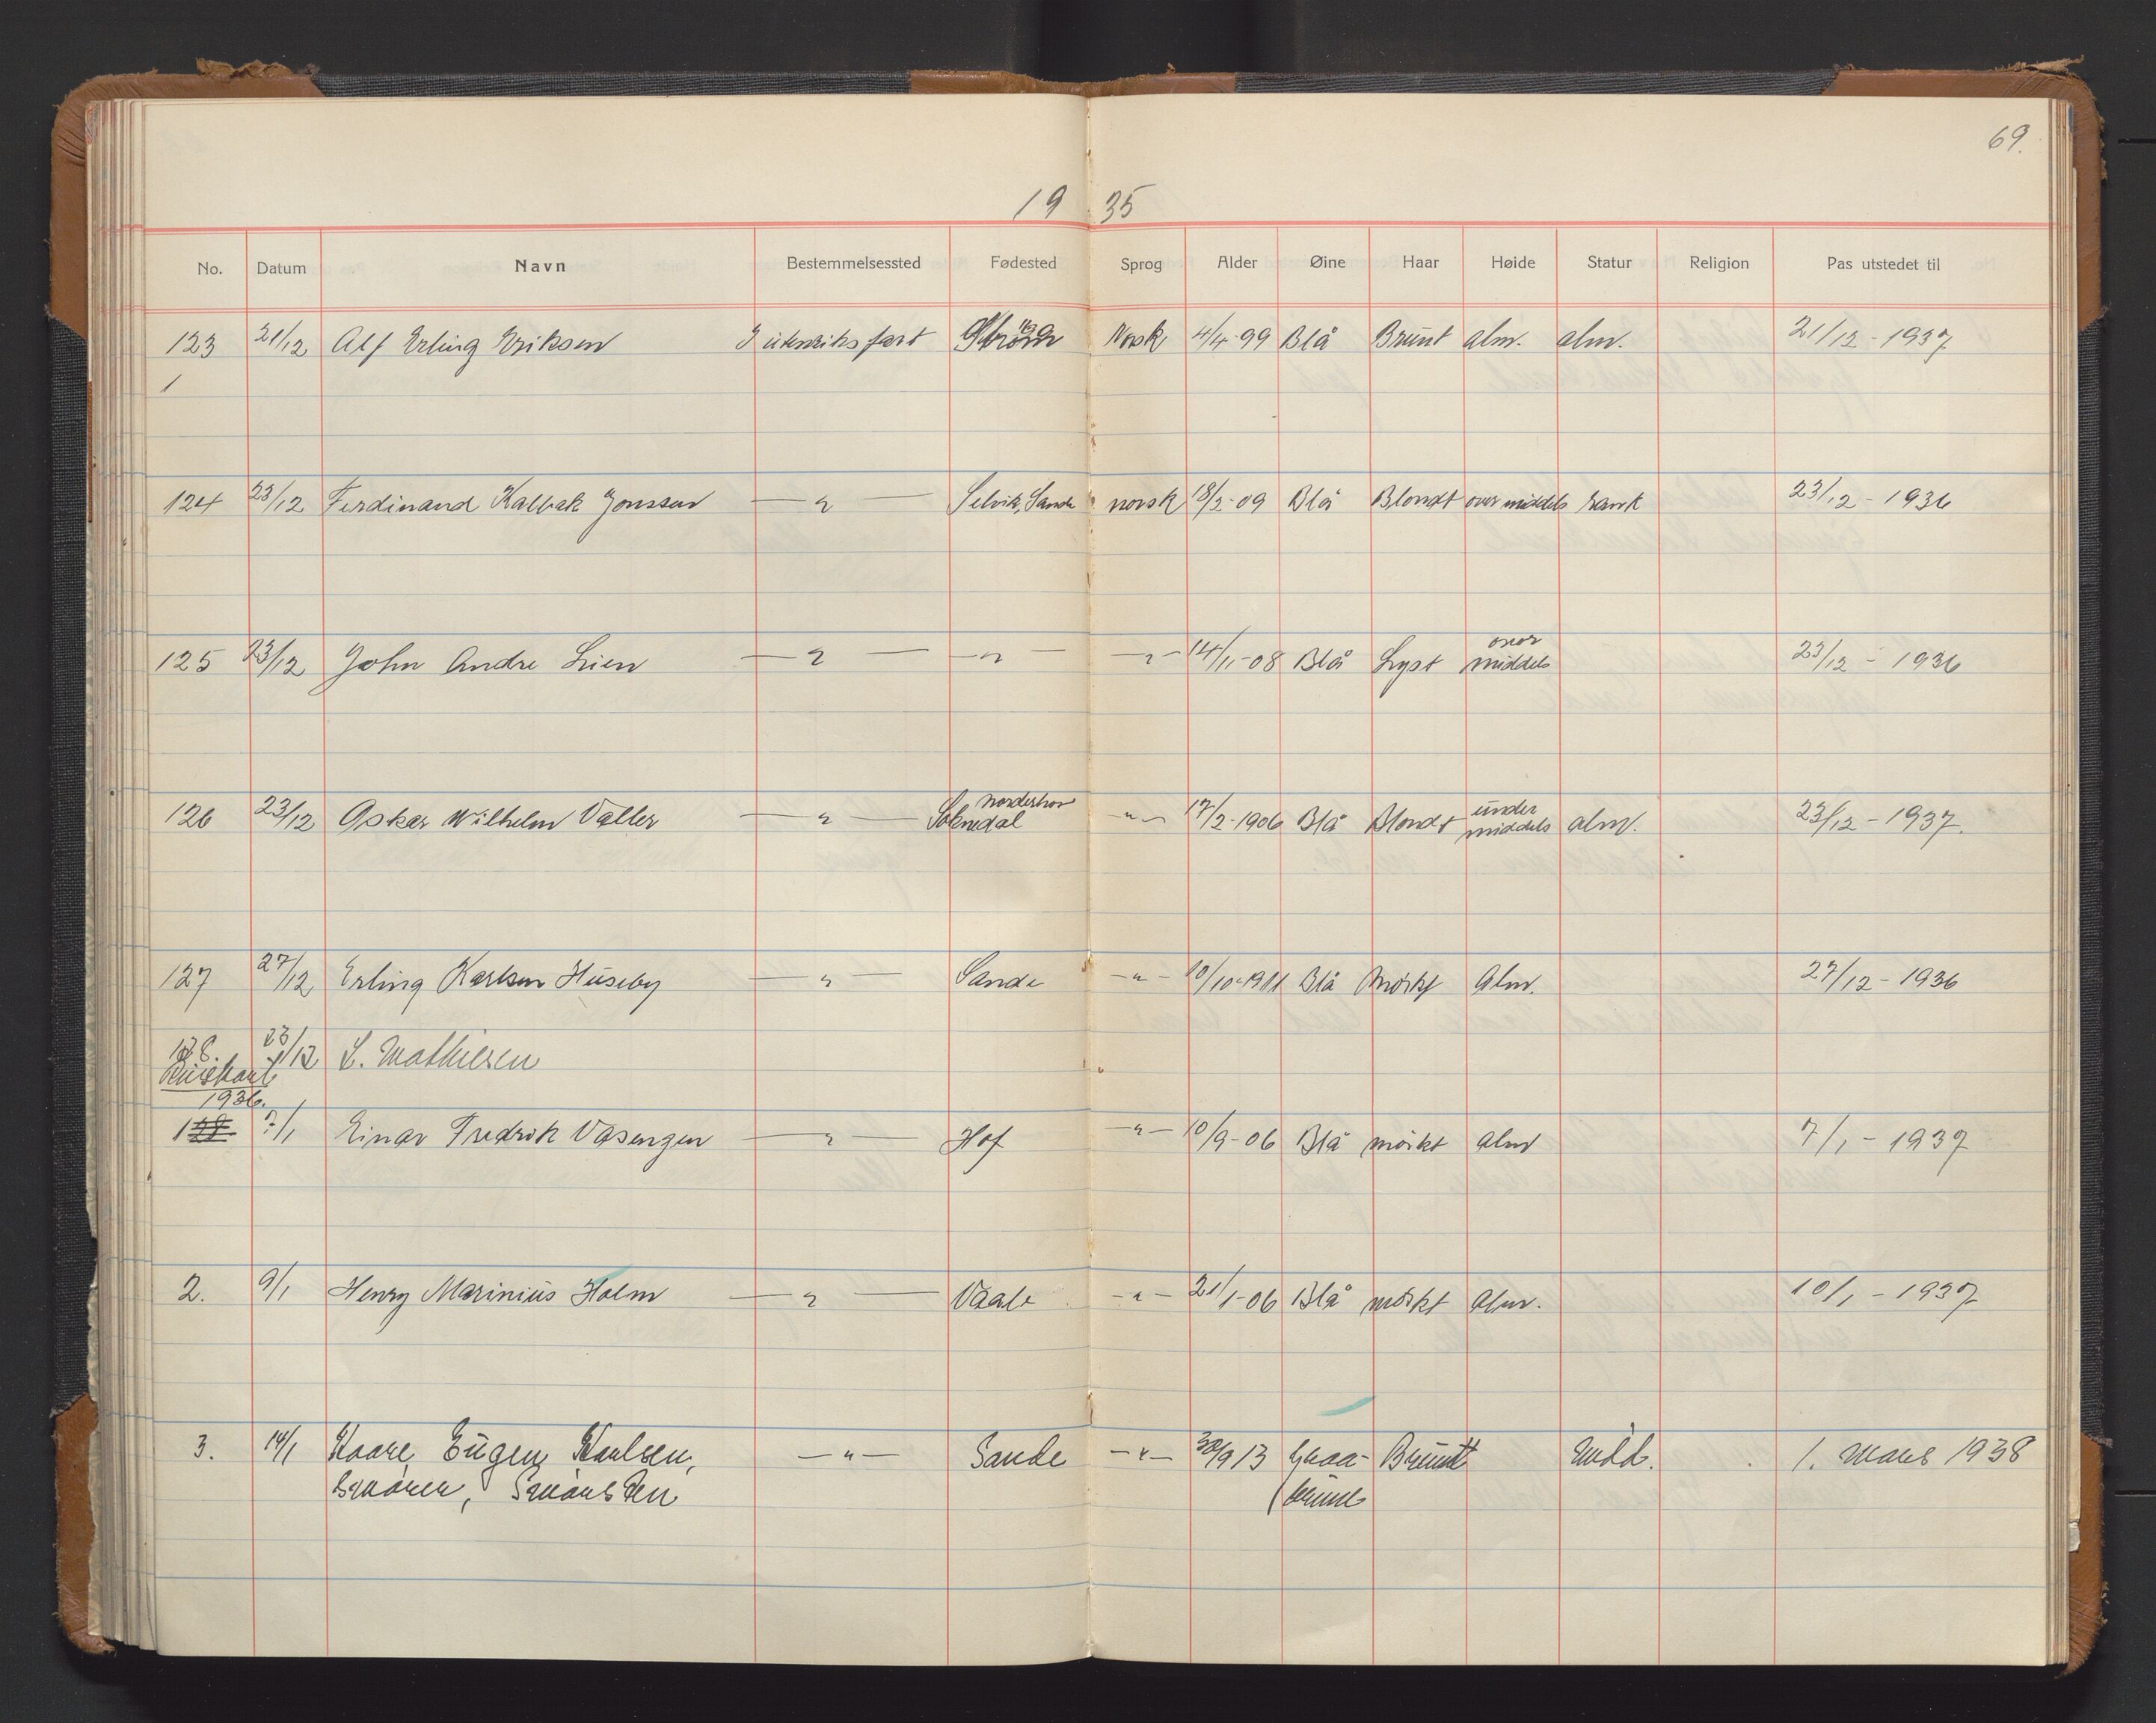 69.
19 35
No. Datum Navn Bestemmelsessted Fødested Sprog Alder Øine Haar Høide Statur Religion Pas utstedet til
123 21/12 Alf Erling Eriksen I utenriksfart Norsk 4/4-99 Blå Brunt alm. alm. 21/12-1937
1
124 23/12 Ferdinand Kalbak Jonssen — " — Selvik, Sande norsk 18/2-09 Blå Blondt over middels 23/12-1936
over
125 23/12 John Andre Lien — " — — " — — " — 14/11-08 Blå Lyst middels 23/12-1936
Norderhov under
126 23/12 Oskar Wilhelm Valler — " — Soknedal — " — 17/2-1906 Blå Blondt middels alm. 23/12-1937.
127 27/12 Erling Karlsen Huseby — " — Sande — " — 10/10-1911 Blå Mørkt Alm. 27/12-1936
128. 23/12 L. Mathiesen
1936.
128 7/1 Einar Fredrik Våsengen — " — Hof — " — 10/9-06 Blå mørkt alm 7/1-1937
2. 9/1 Henry Marinius Holm — " — Vaale — " — 21/1-06 Blå mørkt alm. 10/1-1937
3. 14/1 Kaare Eugen Karlsen, — " — Sande — " — 30/9 13 Graa- Brunt Midd. 1. Mars 1938